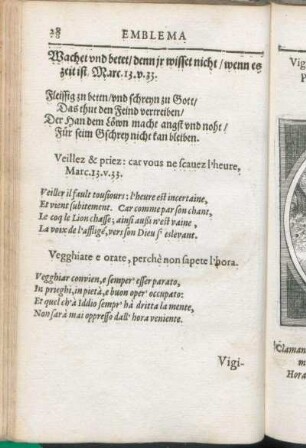 28 EMBLEMA
Wachet vnd betet/ denn jr wisset nicht/ wenn es
zeit ist. Marc. 13. v. 33.
Fleissig zu beten/ vnd schreyn zu Gott/
Das thut den Feind vertreiben/
Der Han dem Löwn macht angst vnd noht/
Für seim Gschrey nicht kan bleiben.
Veillez & priez: car vous ne scauez l'heure,
Marc. 13. v. 33.
Veiller il fault tousiours: l'heure est incertaine,
Et vient subitement. Car comme par son chant,
Le coq le Lion chasse; ainsi aussi n'est vaine,
La voix de l'affligé, vers son Dieu s'eslevant.
Vegghiate e orate, perchè non sapete l'hora.
Vegghiar convien, e semper' esser parato,
In prieghi, in pietà, e buon oper' occupato:
Et quel ch'à Iddio sempr' hà dritta la mente,
Non sarà mai oppresso dall' hora veniente.
Vigi-
Vig
P
Claman
m
Hora